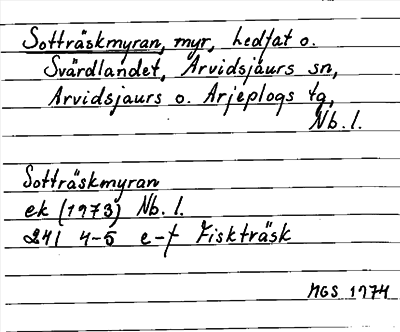 Sotträskmyran, myr, Ledfat o.
Svärdlandet, Arvidsjaurs sn,
Arvidsjaurs o. Arjeplogs tg,
Nb. l.
Sotträskmyran
ek (1973) Nb. l.
241 4-5 e-f Fiskträsk
MGS 1974